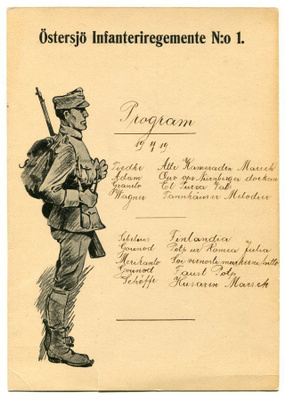 Östersjö Infanteriregemente N:o 1.
Program
19 4 19
Tiedke Alte Kameraden Marsch
Adam Nürnberger dockan
Granito El Turia Vals
Wagner Tannhäuser Melodier
Sibelius Finlandia
Gounod Potp ur Romeo Julia
Merikanto Soi
Gounod Faust Potp
Schöffe Husaren Marsch